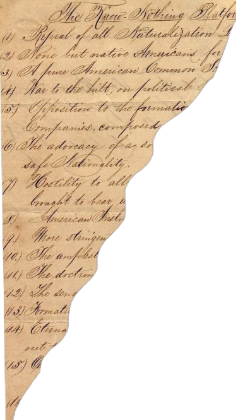 The Know-Nothing Platfor
(1) Repeal of all Naturalization
2) None but native Americans for
3) A pure American Common S
(4) War to the hilt, on political
5) Opposition to the formatio
Companies, composed
6) The advocacy of a, so
safe Nationality.
(7) Hostility to all
brought to bear a
8) American Insti
9) More stringen
10.) The amplest
11.) The doctrin
12.) The send
13.) Formati
14) Eterna
15)